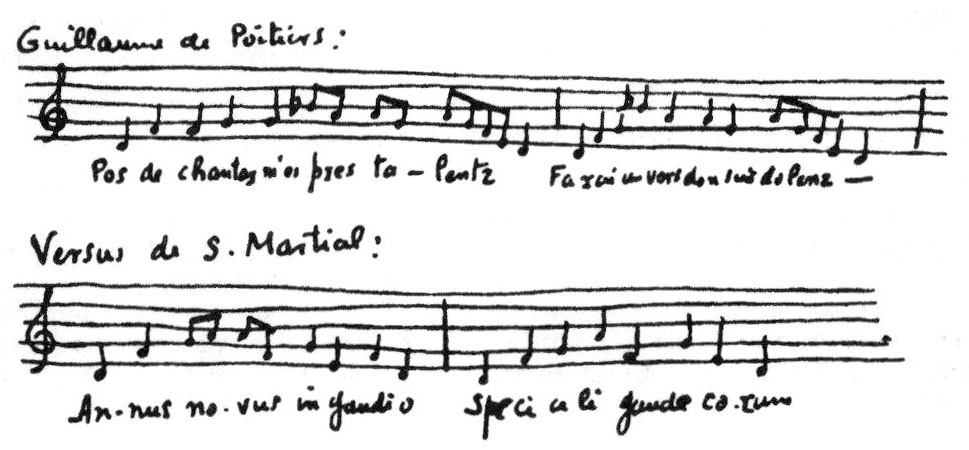 Guillaume de Poitiers :
Pos de chantar m'es pres ta – lentz Farai un vers don sui dolenz —
Versus de S. Martial :
An-nus no-vus in gaudio Speci a li gaude co-rum